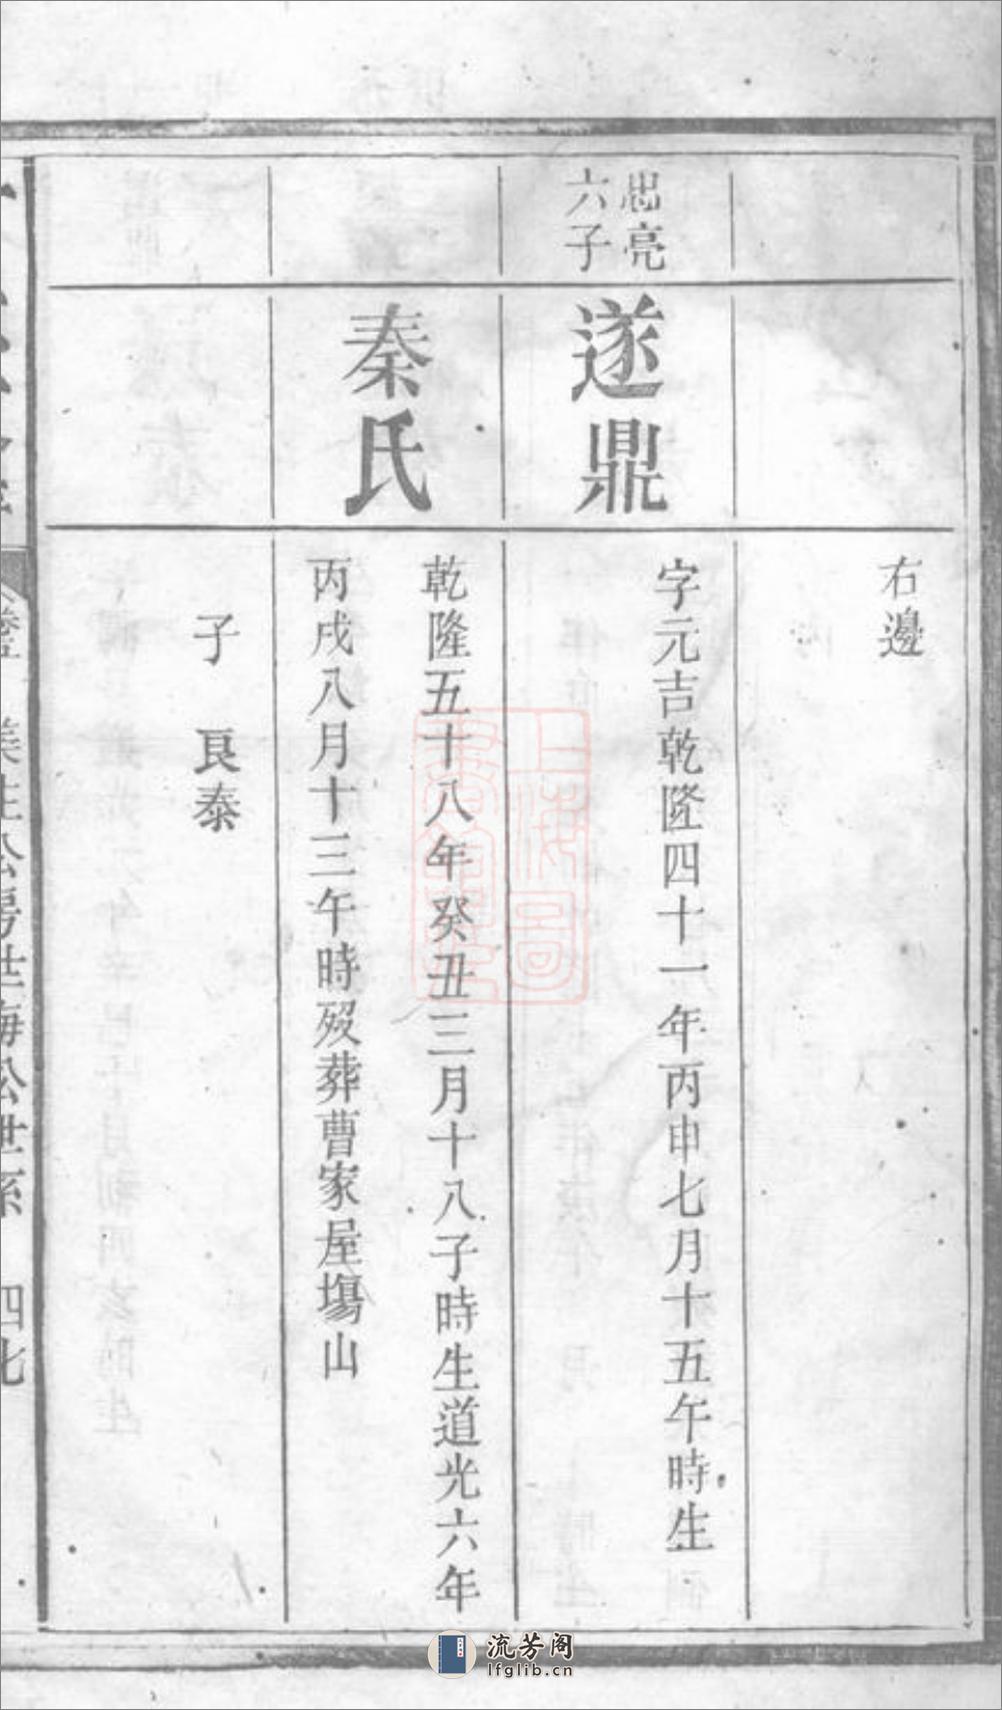 右邊
出亮
六子
遂鼎
字元吉乾隆四十一年丙申七月十五午時生
秦氏
乾隆五十八年癸丑三月十八子時生道光六年
丙戌八月十三午時歿葬曹家屋塲山
子 良泰
公房世海公世系 四七
上海圖
書館藏
流芳阁
lfglib.cn